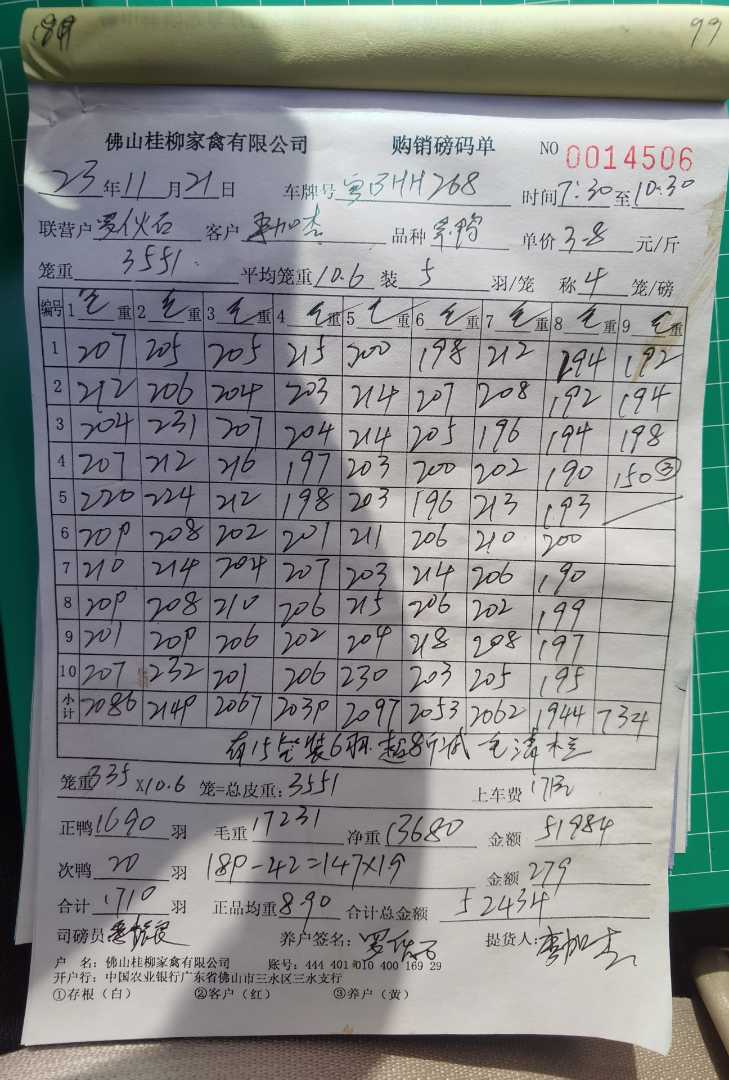 99
佛山桂柳家禽有限公司 购销磅码单 NO 0014506
23年11月21日 车牌号 粤BHH268 时间7:30至10:30
联营户 罗伙石 客户 品种 单价3.8元/斤
笼重 3551 平均笼重10.6 装5羽/笼 称4笼/磅
编号 1毛重 2毛重 3毛重 4毛重 5毛重 6毛重 7毛重 8毛重 9毛重
1 207 205 205 215 200 198 212 194 192
2 212 206 204 203 214 207 208 192 194
3 204 231 207 204 214 205 196 194 198
4 207 212 216 197 203 200 202 190 150③
5 220 224 212 198 203 196 213 193
6 209 208 202 201 211 206 210 200
7 210 214 204 207 203 214 206 190
8 209 208 210 206 215 206 202 199
9 201 209 206 202 204 218 208 197
10 207 232 201 206 230 203 205 195
小计 2086 2149 2067 2039 2097 2053 2062 1944 734
有15笼装6羽 超8斤减 毛清栏
笼重335×10.6笼=总皮重:3551 上车费
正鸭1690羽 毛重17231 净重13680 金额51984
次鸭20羽 189-42=147×1.9 金额279
合计1710羽 正品均重8.90 合计总金额52434
司磅员 养户签名: 罗伙石 提货人:
户 名:佛山桂柳家禽有限公司 账号:444 401 010 400 169 29
开户行:中国农业银行广东省佛山市三水区三水支行
①存根(白) ②客户(红) ③养户(黄)